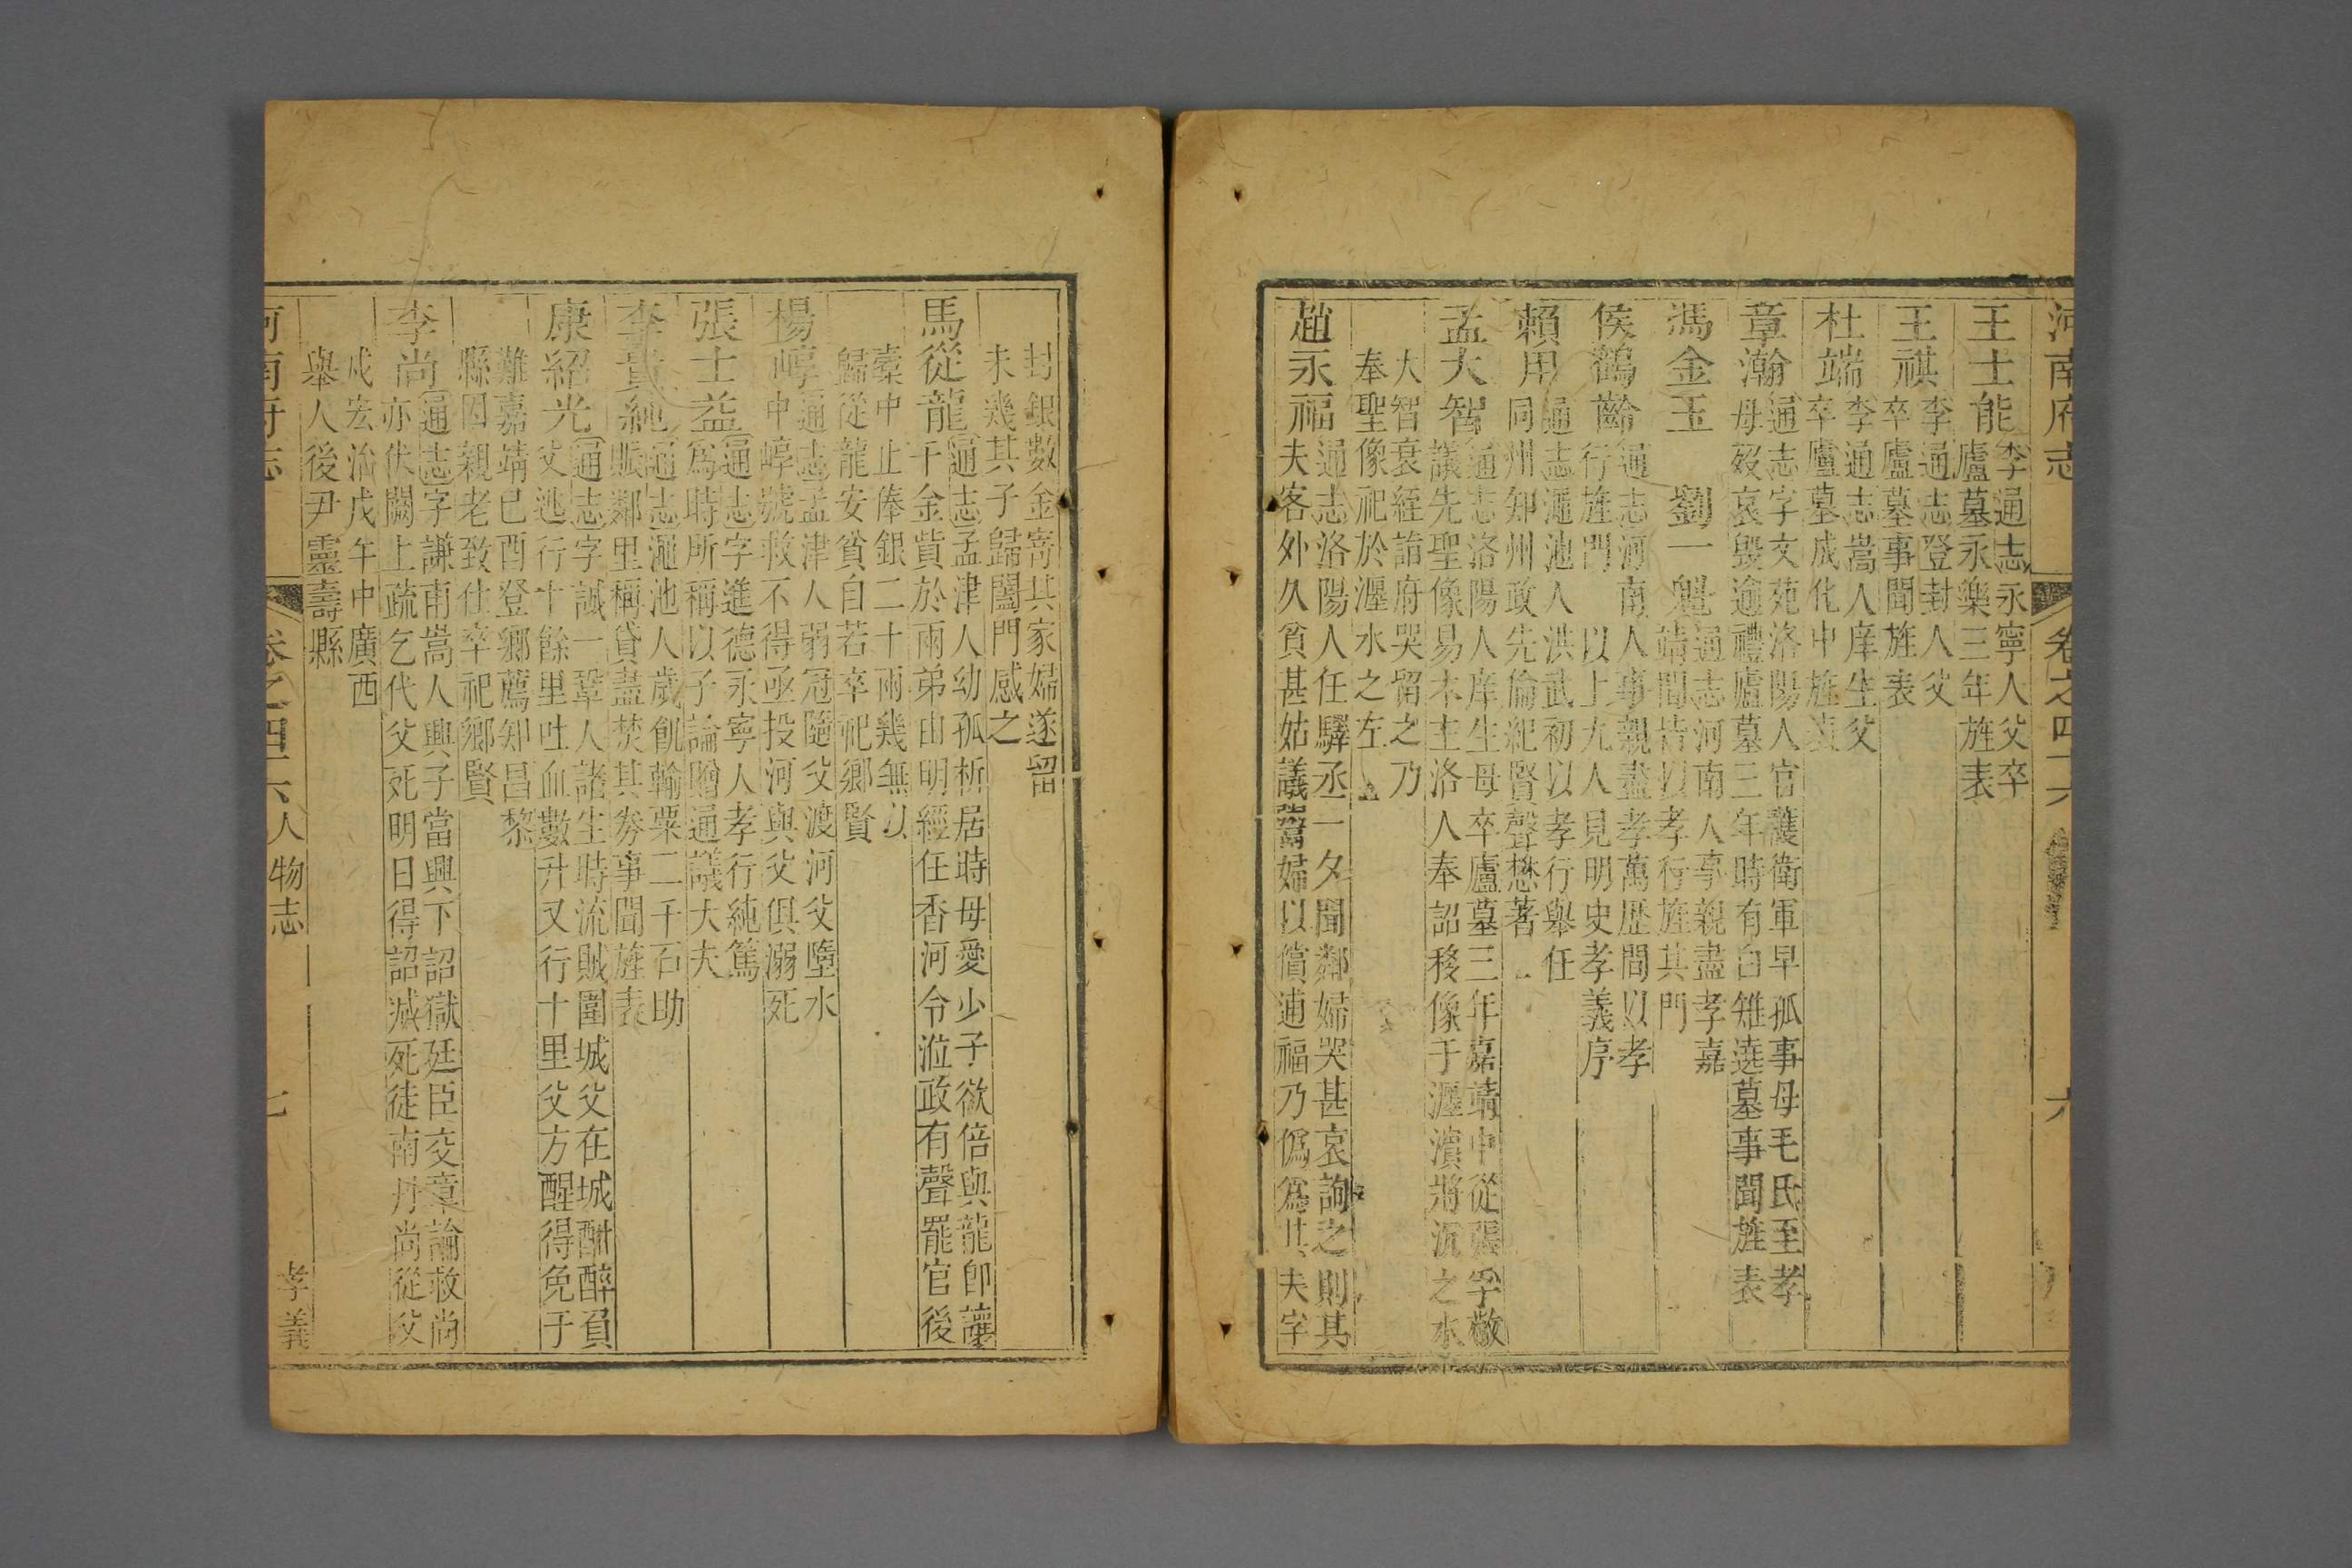 河南府志 卷之四十六 六
王士能 李通志永寧人父卒
廬墓永樂三年旌表
王祺 李通志登封人父
卒廬墓事聞旌表
杜端 李通志嵩人庠生父
卒廬墓成化中旌表
章瀚 通志字文苑洛陽人官護衛軍早孤事母毛氏至孝
母歿哀毀逾禮廬墓三年時有白雉遶墓事聞旌表
馮金玉 劉一魁 通志河南人事親盡孝嘉
靖間 以孝行旌其門
侯鶴齡 通志河南人事親盡孝萬歷間以孝
行旌門 以上九人見明史孝義序
賴用 通志澠池人洪武初以孝行舉任
同州知州政先倫紀賢聲懋著
孟大智 通志洛陽人庠生母卒廬墓三年嘉靖中從張孚敬
議先聖像易木主洛人奉詔移像于瀍濱將沉之水
大智衰絰詣府哭留之乃
奉聖像祀於瀍水之左
趙永福 通志洛陽人任驛丞一夕聞鄰婦哭甚哀詢之則其
夫客外久貧甚姑議鬻婦以償逋福乃僞爲其夫字
封銀數金寄其家婦遂留
未幾其子歸闔門感之
馬從龍 通志孟津人幼孤析居時母愛少子欲倍與龍卽讓
千金貲於兩弟由明經任香河令涖政有聲罷官後
橐中止俸銀二十兩幾無以
歸從龍安貧自若卒祀鄉賢
楊崞 通志孟津人弱冠隨父渡河父墮水
中崞號救不得亟投河與父俱溺死
張士益 通志字進德永寧人孝行純篤
爲時所稱以子論贈通議大夫
李貴純 通志澠池人歲飢輸粟二千石助
賑鄰里稱貸盡焚其券事聞旌表
康紹光 通志字誠一鞏人諸生時流賊圍城父在城酣醉負
父逃行十餘里吐血數升又行十里父方醒得免于
難嘉靖己酉登鄉薦知昌黎
縣因親老致仕卒祀鄉賢
李尚 通志字謙甫嵩人興子當興下詔獄廷臣交章論救尚
亦伏闕上疏乞代父死明日得詔減死徒南丹尚從父
戍宏治戊午中廣西
舉人後尹靈壽縣
河南府志 卷之四十六 人物志 七 孝義